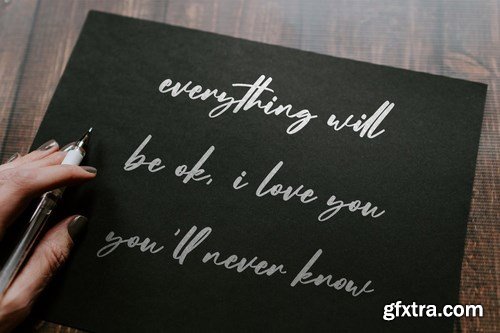 everything will
be ok, i love you
you'll never know
gfxtra.com